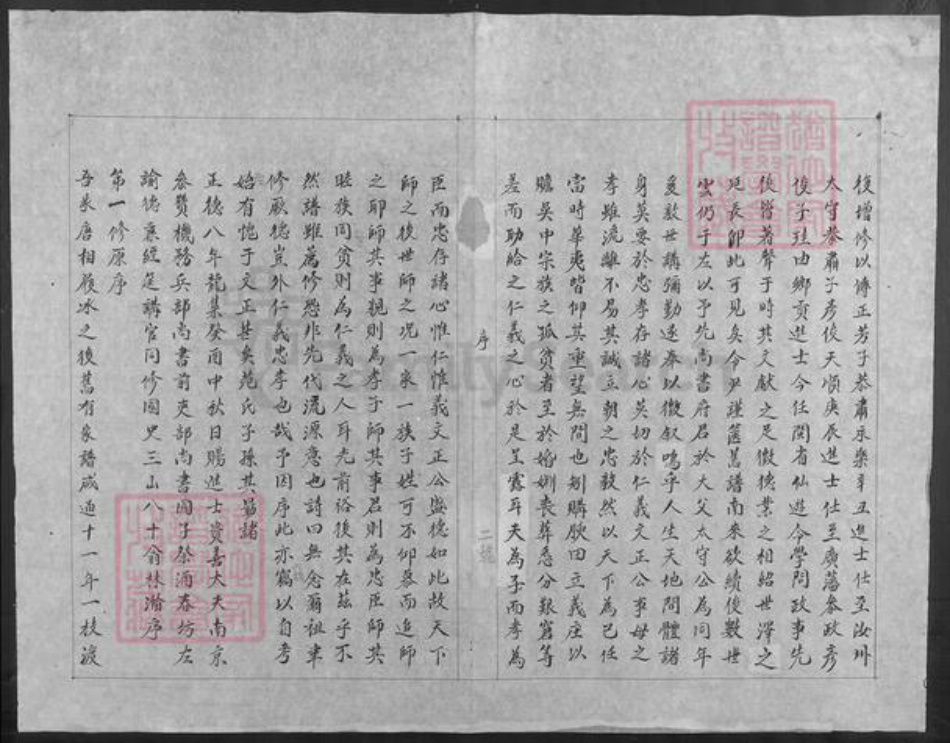 復增修以傳正芳子恭肅永樂辛丑進士仕至汝州
太守恭肅子彥俊天順庚辰進士仕至廣藩參政彥
俊子珪由鄉貢進士今任閩省仙遊令學問政事先
後皆著聲于時其文獻之足徵德業之相紹世澤之
延長即此可見矣令尹謹篋舊譜南來欲續後數世
雲仍于左以予先尚書府君於大父太守公為同年
爰敦世講彌勤遂奉以徵叙嗚乎人生天地間體諸
身莫要於忠孝存諸心莫切於仁義文正公事母之
孝雖流離不易其誠立朝之忠毅然以天下為己任
當時華夷皆仰其重望無間也別購腴田立義庄以
贍吳中宗族之孤貧者至於婚姻喪葬悉分艱窘等
差而助給之仁義之心於是呈露耳夫為子而孝為
序
臣而忠存諸心惟仁惟義文正公盛德如此故天下
師之後世師之况一家一族子姓可不仰慕而追師
之耶師其事親則為孝子師其事君則為忠臣師其
睦族同貧則為仁義之人耳光前裕後其在茲乎不
然譜雖舊修恐非先代流源意也詩曰無念爾祖聿
修厥德豈外仁義忠孝也哉予因序此亦竊以自考
始有愧于文正甚矣范氏子孫其勗諸
正德八年龍集癸酉中秋日賜進士資善大夫南京
參贊機務兵部尚書前吏部尚書國子祭酒春坊左
諭德兼經筵講官同修國史三山八十翁林瀚序
第一修原序
吾家唐相履冰之後舊有家譜咸通十一年一枝渡